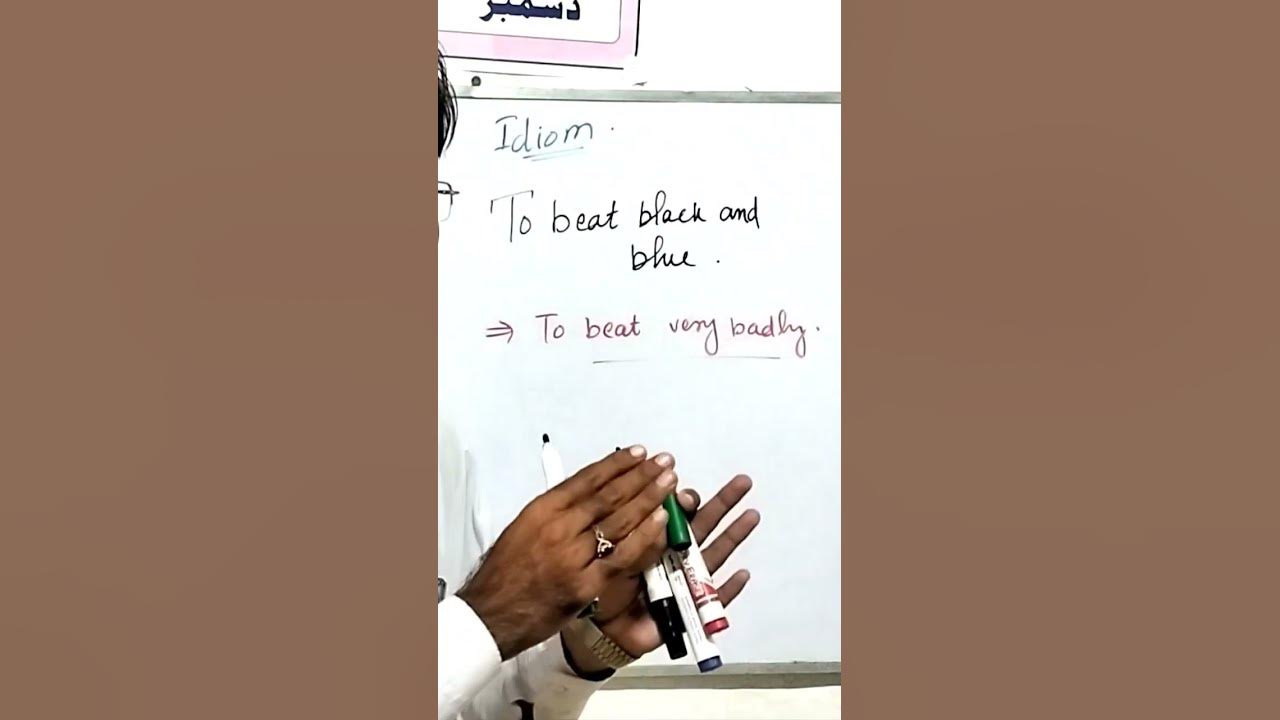 دسمبر
Idiom.
To beat black and
blue.
⇒ To beat very badly.